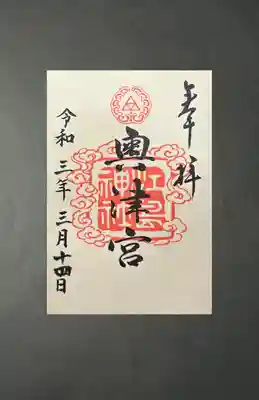 奉拝
奥津宮
江島
神社
令和三年三月十四日